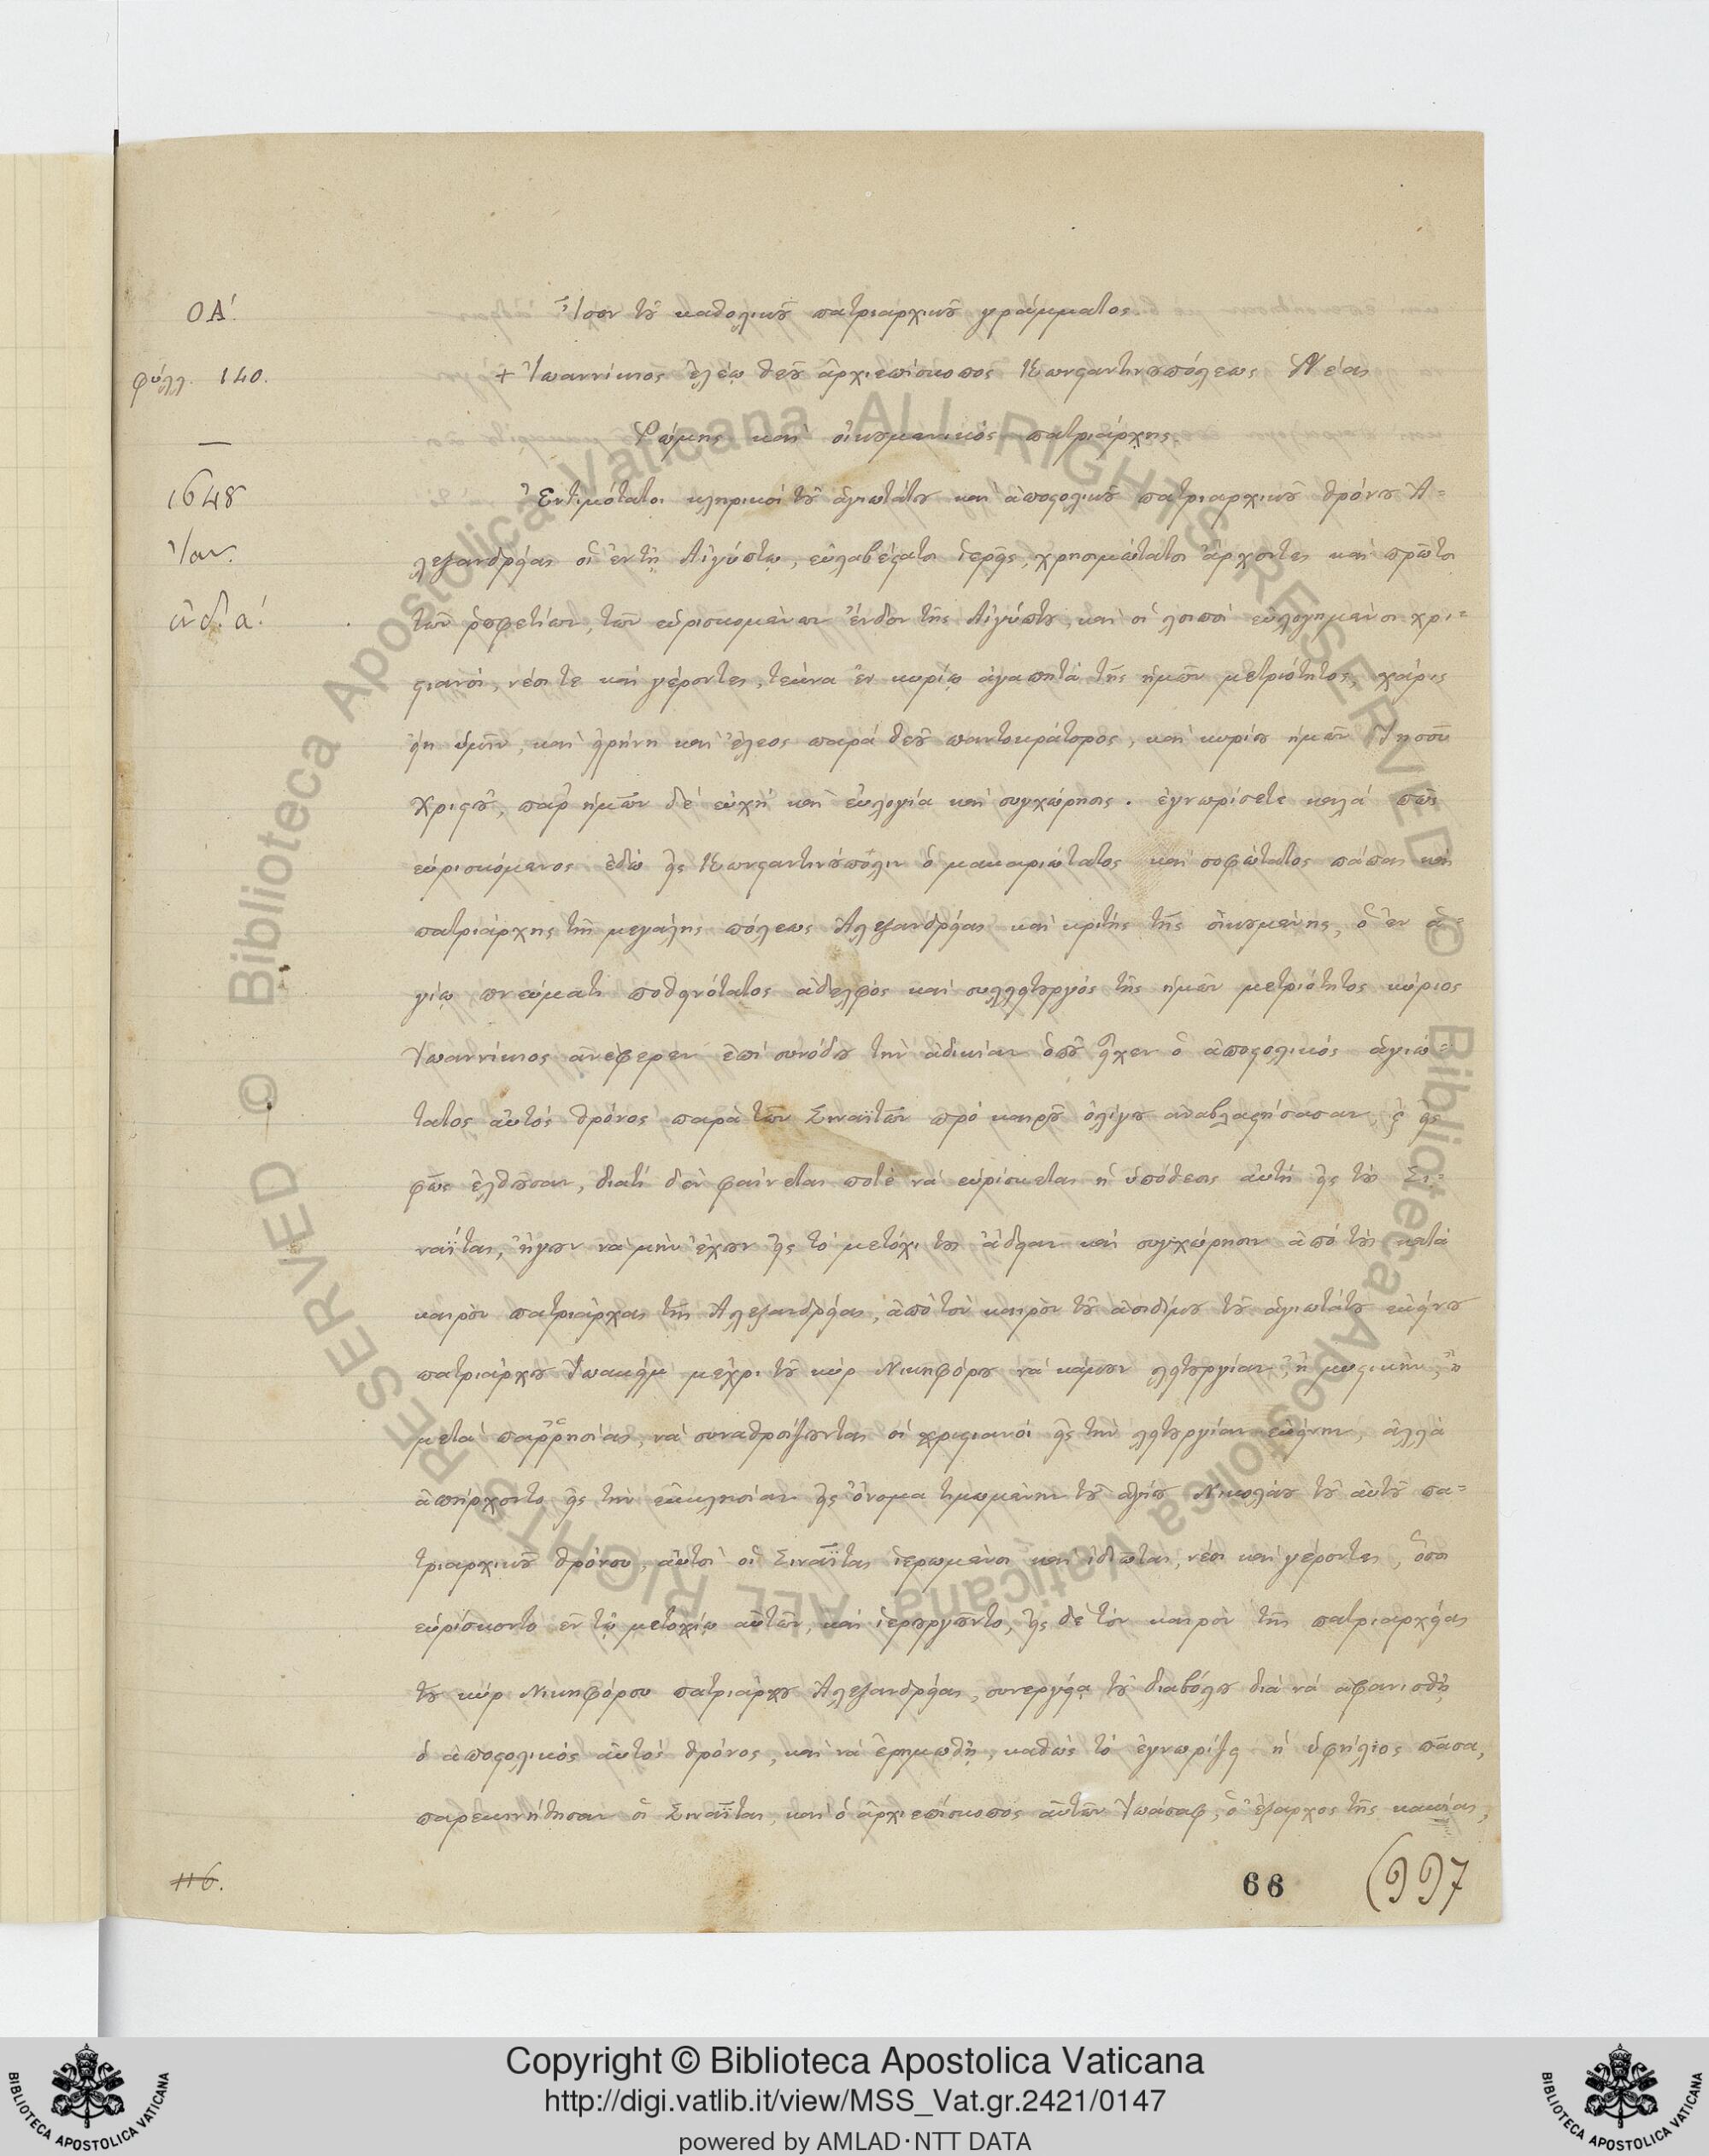 ΟΑ΄.
φύλλ. 140.
1648
Ἰαν.
ἰνδ. α΄.
Ἴσον τοῦ καθολικοῦ πατριαρχικοῦ γράμματος.
+ Ἰωαννίκιος ἐλέῳ θεοῦ ἀρχιεπίσκοπος Κωνσταντινουπόλεως Νέας
Ῥώμης καὶ οἰκουμενικός πατριάρχης.
Ἐντιμότατοι κληρικοί τοῦ ἁγιωτάτου καὶ ἀποστολικοῦ πατριαρχικοῦ θρόνου Ἀ=
λεξανδρείας οἱ ἐν τῇ Αἰγύπτῳ, εὐλαβέστατοι ἱερεῖς, χρησιμώτατοι ἄρχοντες καὶ πρῶτοι
τῶν ῥουφετίων, τῶν εὑρισκομένων ἔνδον τῆς Αἰγύπτου, καὶ οἱ λοιποί εὐλογημένοι χρι=
στιανοί, νέοι τε καὶ γέροντες, τέκνα ἐν κυρίῳ ἀγαπητά τῆς ἡμῶν μετριότητος, χάρις
εἴη ὑμῖν, καὶ εἰρήνη καὶ ἔλεος παρά θεοῦ παντοκράτορος, καὶ κυρίου ἡμῶν Ἰησοῦ
Χριστοῦ, παρ' ἡμῶν δέ εὐχή καὶ εὐλογία καὶ συγχώρησις. ἐγνωρίσετε καλά πῶς
εὑρισκόμενος ἐδῶ εἰς Κωνσταντινούπολιν ὁ μακαριώτατος καὶ σοφώτατος πάπας καὶ
πατριάρχης τῆς μεγάλης πόλεως Ἀλεξανδρείας καὶ κριτής τῆς οἰκουμένης, ὁ ἐν ἁ=
γίῳ πνεύματι ποθεινότατος ἀδελφός καὶ συλλειτουργός τῆς ἡμῶν μετριότητος κύριος
Ἰωαννίκιος ἀνέφερεν ἐπί συνόδου τὴν ἀδικίαν ὁποῦ εἶχεν ὁ ἀποστολικός ἁγιώ=
τατος αὐτός θρόνος παρά τῶν Σιναϊτῶν πρό καιροῦ ὀλίγου ἀναβλαστήσασαν, καὶ εἰς
φῶς ἐλθοῦσαν, διατί δέν φαίνεται ποτέ νά εὑρίσκεται ἡ ὑπόθεσις αὐτή εἰς τούς Σι=
ναΐτας, ἤγουν νά μήν ἔχουν εἰς τό μετόχι τους ἄδειαν καὶ συγχώρησιν ἀπό τούς κατά
καιρόν πατριάρχας τῆς Ἀλεξανδρείας, ἀπό τόν καιρόν τοῦ ἀοιδίμου τοῦ ἁγιωτάτου ἐκείνου
πατριάρχου Ἰωακείμ μέχρι τοῦ κύρ Νικηφόρου νά κάμουν λειτουργίαν, ἢ μυστικήν, ἢ
μετά παῤῥησίας, νά συναθροίζωνται οἱ χριστιανοί εἰς τήν λειτουργίαν ἐκείνην, ἀλλά
ἀπήρχοντο εἰς τήν ἐκκλησίαν εἰς ὄνομα τιμωμένην τοῦ ἁγίου Νικολάου τοῦ αὐτοῦ πα=
τριαρχικοῦ θρόνου, αὐτοί οἱ Σιναΐται ἱερωμένοι καὶ ἰδιῶται, νέοι καὶ γέροντες, ὅσοι
εὑρίσκοντο ἐν τῷ μετοχίῳ αὐτῶν, καὶ ἱερουργοῦντο, εἰς δέ τόν καιρόν τῆς πατριαρχείας
τοῦ κύρ Νικηφόρου πατριάρχου Ἀλεξανδρείας, συνεργείᾳ τοῦ διαβόλου διά νά ἀφανισθῇ
ὁ ἀποστολικός αὐτός θρόνος, καὶ νά ἐρημωθῇ, καθώς τό ἐγνωρίζει ἡ ὑφήλιος πᾶσα,
παρεκινήθησαν οἱ Σιναΐται, καὶ ὁ ἀρχιεπίσκοπος αὐτῶν Ἰωάσαφ, ὁ ἔξαρχος τῆς κακίας,
116.
66
(997
Copyright © Biblioteca Apostolica Vaticana
http://digi.vatlib.it/view/MSS_Vat.gr.2421/0147
powered by AMLAD·NTT DATA
BIBLIOTECA APOSTOLICA VATICANA
BIBLIOTECA APOSTOLICA VATICANA
© Biblioteca Apostolica Vaticana ALL RIGHTS RESERVED
© Biblioteca Apostolica Vaticana ALL RIGHTS RESERVED